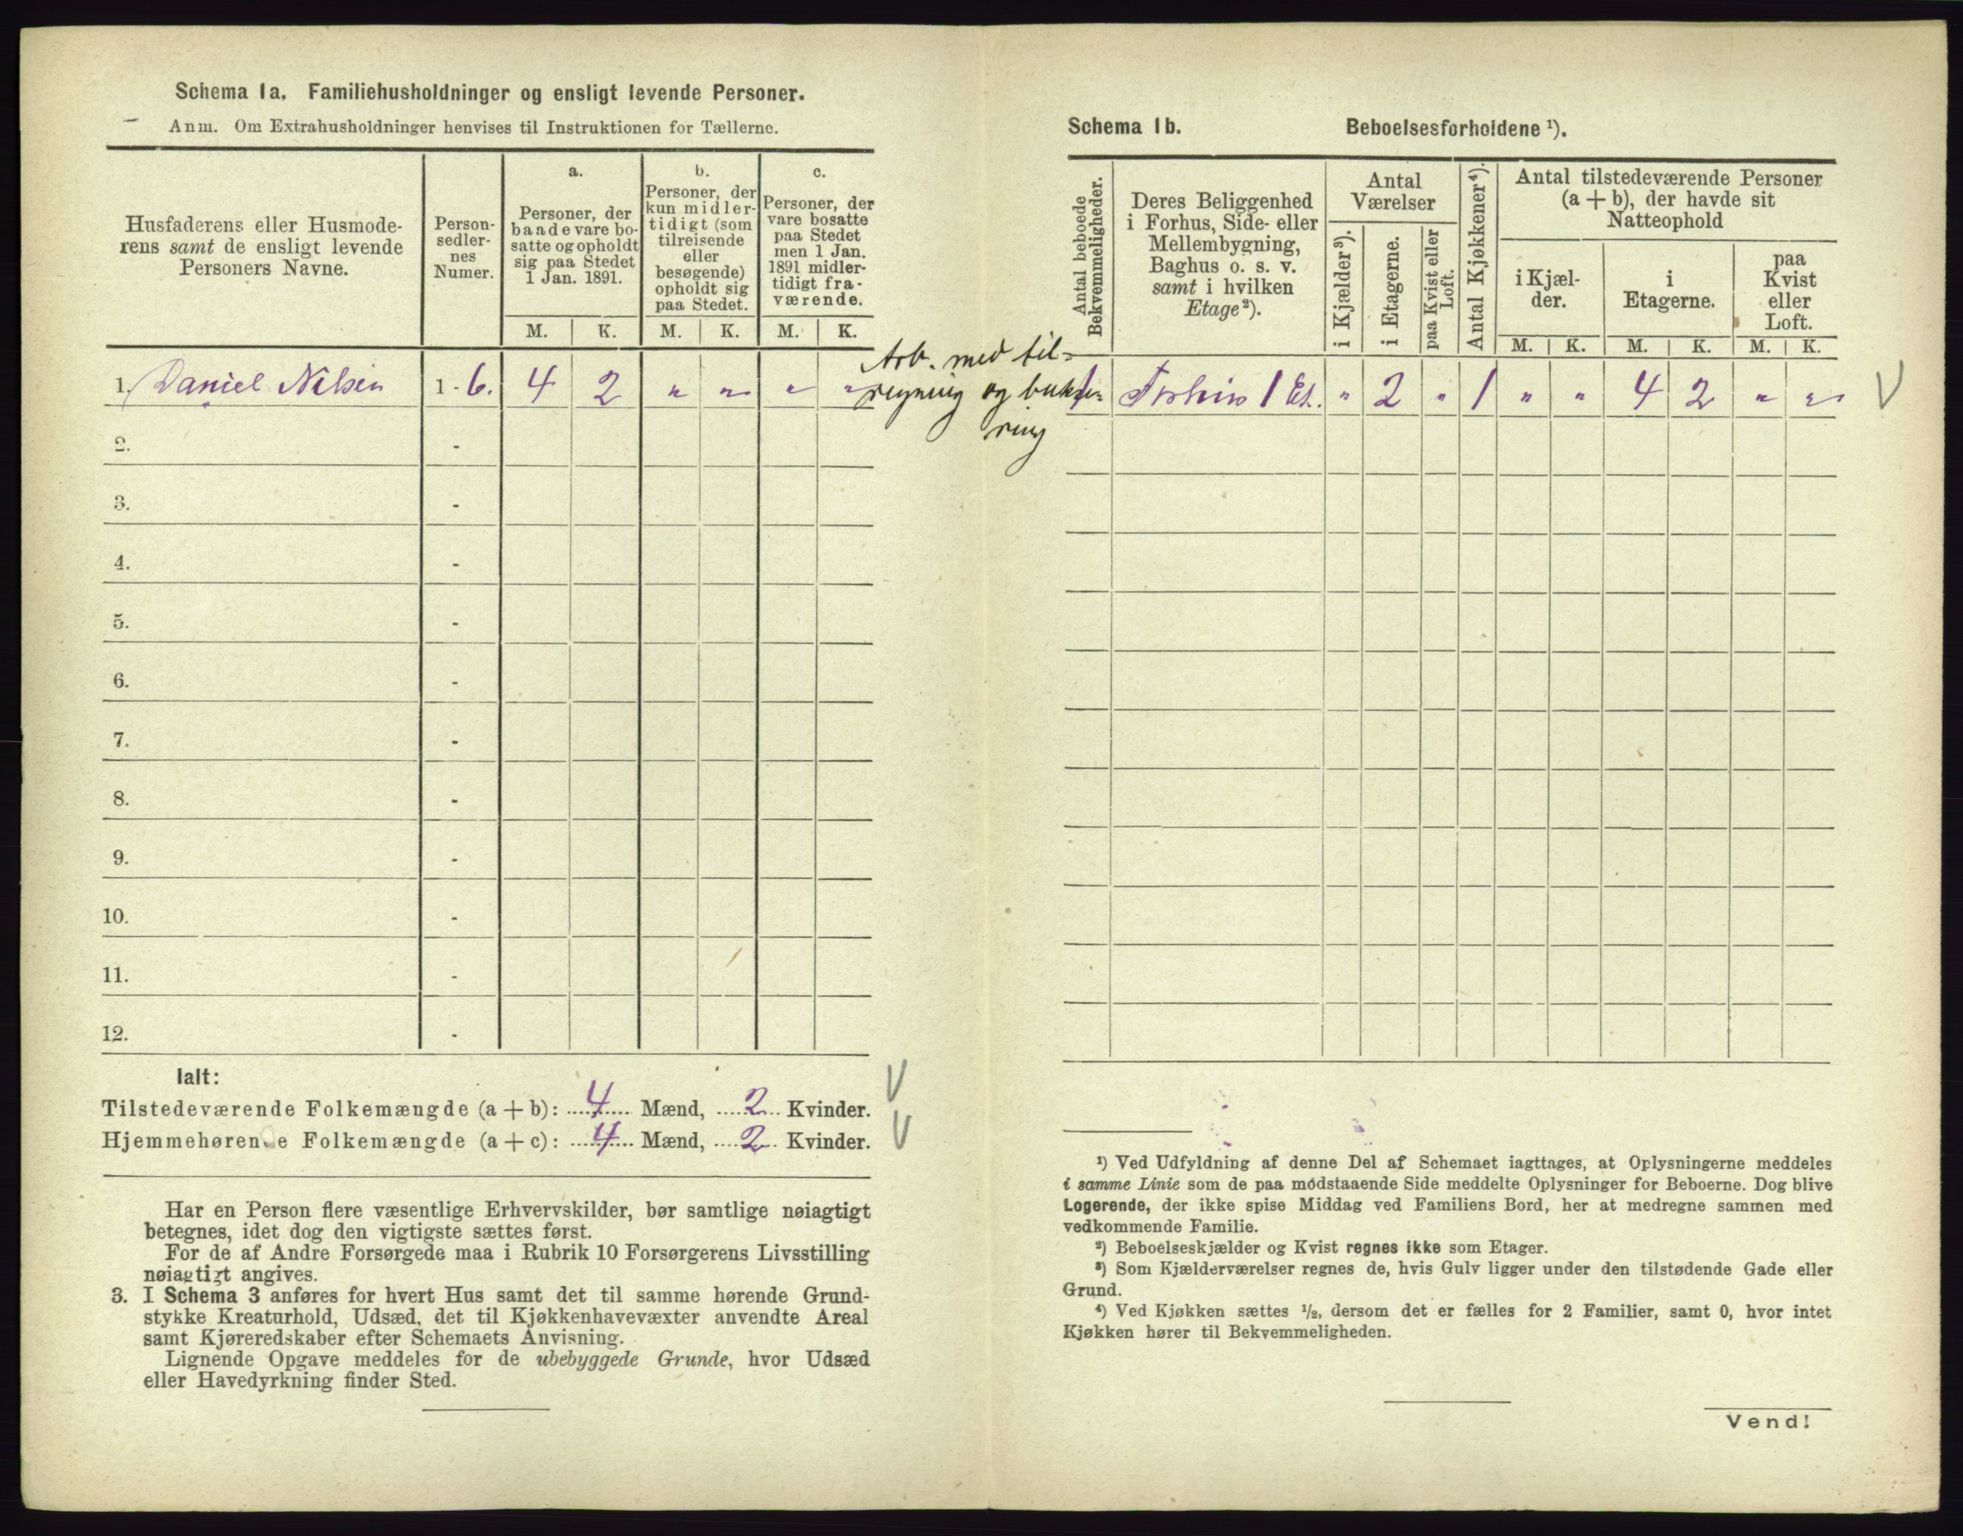 Schema 1a. Familiehusholdninger og ensligt levende Personer.
Anm. Om Extrahusholdninger henvises til Instruktionen for Tællerne.
Husfaderens eller Husmode-
rens samt de ensligt levende
Personers Navne.
Person-
sedler-
nes
Numer.
a.
Personer, der
baade vare bo-
satte og opholdt
sig paa Stedet
1 Jan. 1891.
b.
Personer, der
kun midler-
tidigt (som
tilreisende
eller
besøgende)
opholdt sig
paa Stedet.
c.
Personer, der
vare bosatte
paa Stedet
men 1 Jan.
1891 midler-
tidigt fra-
værende.
M. K. M. K. M. K.
1. Daniel Nilsen 1 - 6. 4 2 " " " "
2. -
3. -
4. -
5. -
6. -
7. -
8. -
9. -
10. -
11. -
12. -
Ialt:
Tilstedeværende Folkemængde (a + b): 4 Mænd, 2 Kvinder. V
Hjemmehørende Folkemængde (a + c): 4 Mænd, 2 Kvinder. V
Har en Person flere væsentlige Erhvervskilder, bør samtlige nøiagtigt
betegnes, idet dog den vigtigste sættes først.
For de af Andre Forsørgede maa i Rubrik 10 Forsørgerens Livsstilling
nøiagtigt angives.
3. I Schema 3 anføres for hvert Hus samt det til samme hørende Grund-
stykke Kreaturhold, Udsæd, det til Kjøkkenhavevæxter anvendte Areal
samt Kjøreredskaber efter Schemaets Anvisning.
Lignende Opgave meddeles for de ubebyggede Grunde, hvor Udsæd
eller Havedyrkning finder Sted.
Arb. med til-
og
ring
Schema 1b. Beboelsesforholdene ¹).
Antal beboede
Bekvemmeligheder.
Deres Beliggenhed
i Forhus, Side- eller
Mellembygning,
Baghus o. s. v.
samt i hvilken
Etage²).
Antal
Værelser
i Kjælder³).
i Etagerne.
paa Kvist eller
Loft.
Antal Kjøkkener⁴).
Antal tilstedeværende Personer
(a + b), der havde sit
Natteophold
i Kjæl-
der.
i
Etagerne.
paa
Kvist
eller
Loft.
M. K. M. K. M. K.
1 Forhus 1 Et. " 2 " 1 " " 4 2 " " V
¹) Ved Udfyldning af denne Del af Schemaet iagttages, at Oplysningerne meddeles
i samme Linie som de paa modstaaende Side meddelte Oplysninger for Beboerne. Dog blive
Logerende, der ikke spise Middag ved Familiens Bord, her at medregne sammen med
vedkommende Familie.
²) Beboelseskjælder og Kvist regnes ikke som Etager.
³) Som Kjælderværelser regnes de, hvis Gulv ligger under den tilstødende Gade eller
Grund.
⁴) Ved Kjøkken sættes ½, dersom det er fælles for 2 Familier, samt 0, hvor intet
Kjøkken hører til Bekvemmeligheden.
Vend!